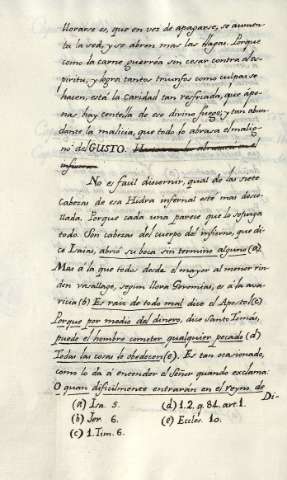 llorarse es, que en vez de apagarse, se aumen-
ta la sed, y se abren mas las llagas. Porque
como la carne guerrea sin cesar contra el es-
piritu, y logra tantos triunfos como culpas se
hacen, está la caridad tan resfriada, que ápe-
nas hay centella de ese divino fuego; y tan abun-
dante la malicia, que todo lo abrasa el malig-
no del GUSTO.
infierno.
No es facil discernir, qual de las siete
cabezas de esa Hidra infernal esté mas desco-
llada. Porque cada una parece que lo sojuzga
todo. Son cabezas del cuerpo del infierno, que di-
ce Isaias, abrió su boca sin termino alguno (a)
Mas á la que todos desde el mayor al menor rin-
den vasallage, segun llora Geremias, es á la ava-
ricia (b) Es raiz de todo mal dice el Apostol (c)
Porque por medio del dinero, dice Santo Tomás,
puede el hombre cometer qualquier pecado (d)
Todas las cosas le obedecen (e). Es tan ocasionado,
como lo da á entender el Señor quando exclama:
O quan dificilmente entrarán en el reyno de
Di-
(a) Isa. 5. (d) 1. 2. q. 84. art. 1.
(b) Jer. 6. (e) Eccles. 10.
(c) 1. Tim. 6.